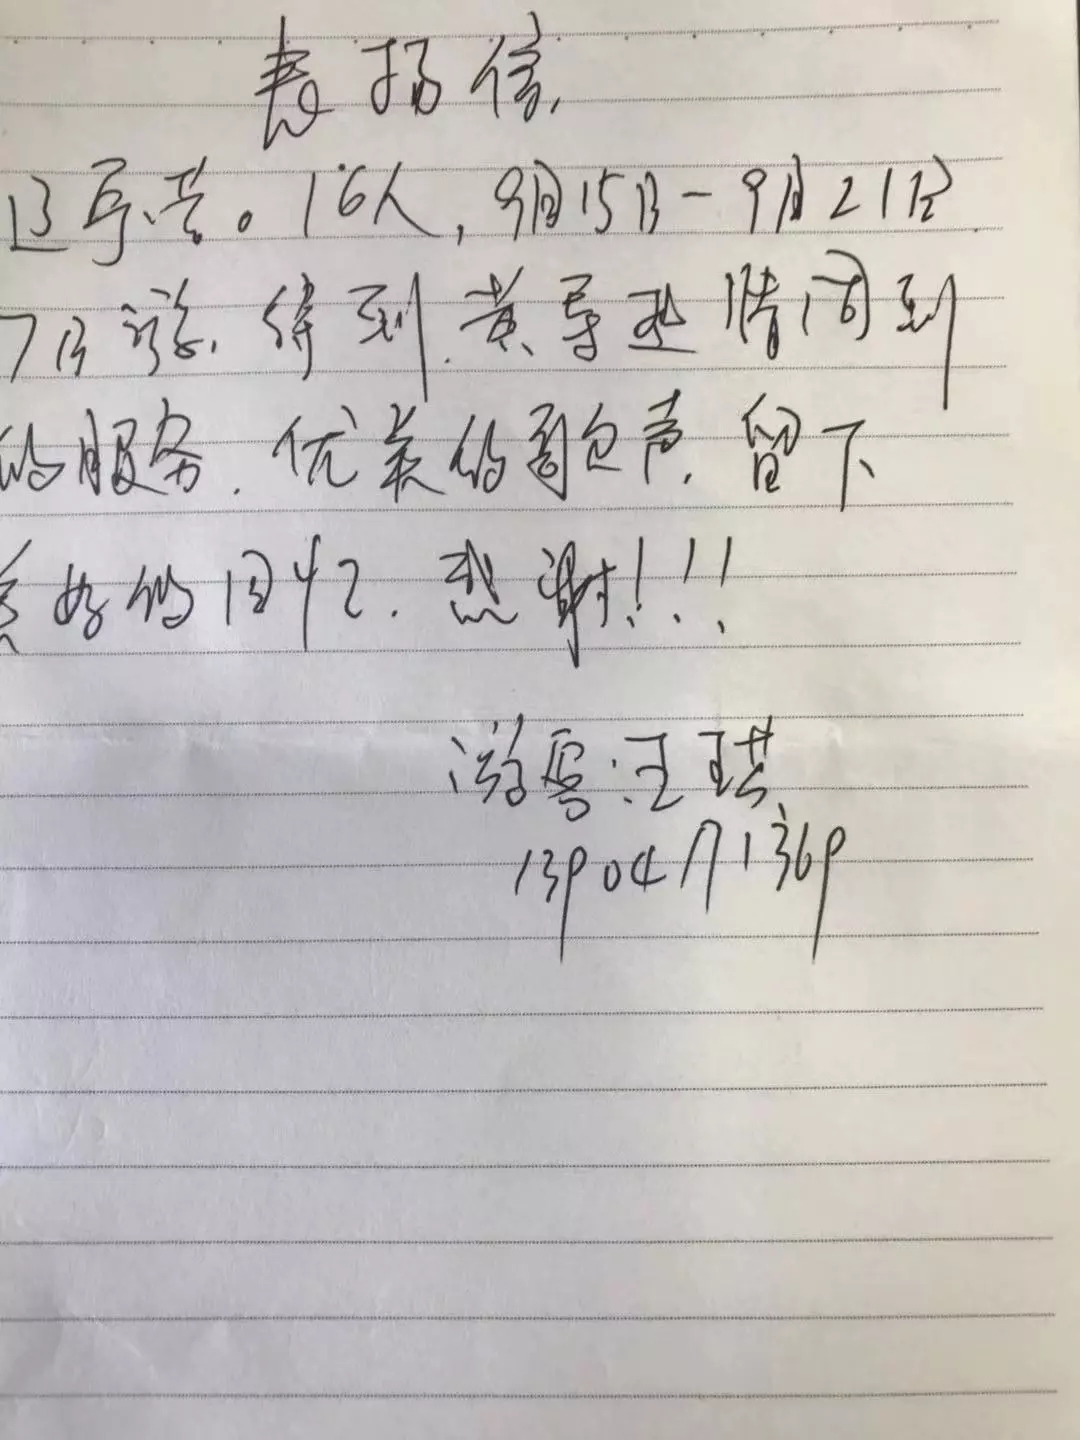 表扬信
16人，9月15日-9月21日
7日游，得到黄导热情周到
的服务.优美的歌声.留下
美好的回忆.感谢!!!
游客:王琪